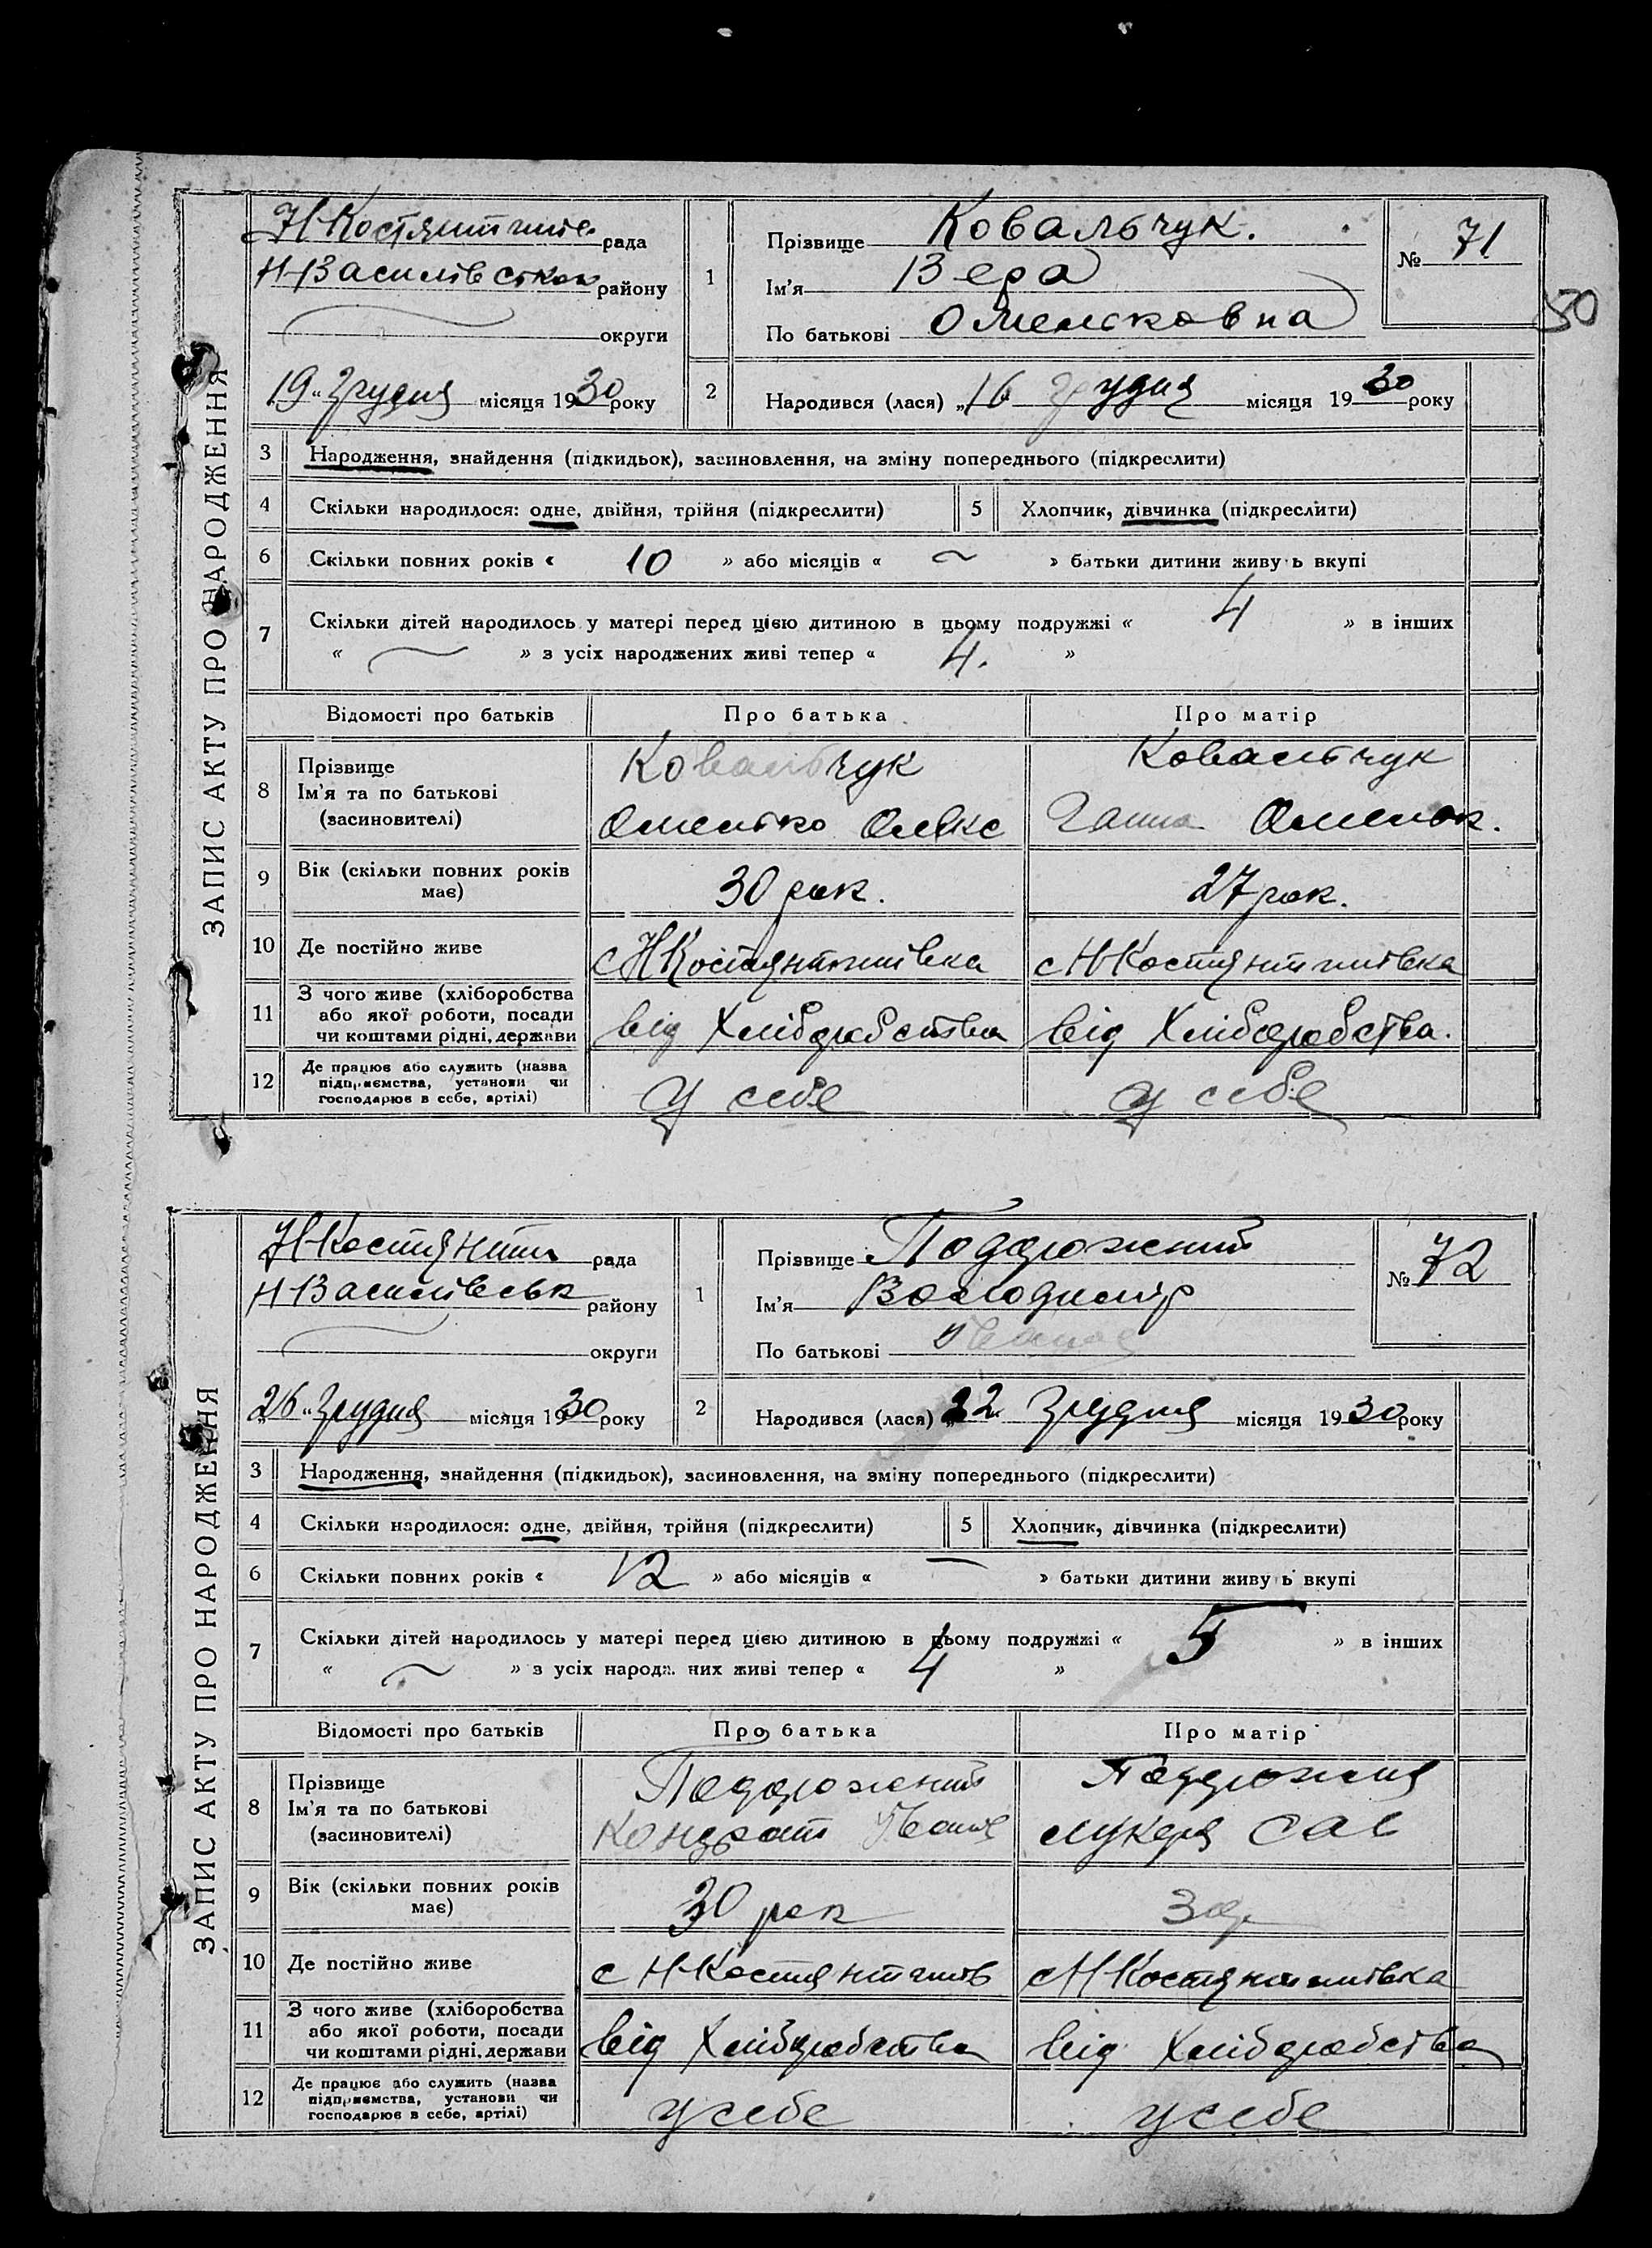 Н-Костянтинів. рада
Н-Василівськ району
округи
„19„ Грудня місяця 1930 року
1
Прізвище Ковальчук.
Ім'я Вера
По батькові Омельковна
№ 71
50
2
Народився (лася) „16„ Грудня місяця 1930 року
ЗАПИС АКТУ ПРО НАРОДЖЕННЯ
3 Народження, знайдення (підкидьок), засиновлення, на зміну попереднього (підкреслити)
4 Скільки народилося: одне, двійня, трійня (підкреслити) 5 Хлопчик, дівчинка (підкреслити)
6 Скільки повних років « 10 » або місяців « ~ » батьки дитини живуть вкупі
7 Скільки дітей народилось у матері перед цією дитиною в цьому подружжі « 4 » в інших
« ~ » з усіх народжених живі тепер « 4. »
Відомості про батьків Про батька Про матір
8 Прізвище Ковальчук Ковальчук
Ім'я та по батькові
(засиновителі) Омелько Олекс Ганна Омельк.
9 Вік (скільки повних років має) 30 рок. 27 рок.
10 Де постійно живе с Н Костянтинівка с Н-Костянтинівка
11 З чого живе (хліборобства
або якої роботи, посади
чи коштами рідні, держави від Хліборобства від Хліборобства.
12 Де працює або служить (назва
підприємства, установи чи
господарює в себе, артілі) у себе у себе
Н-Костянтин рада
Н-Василівськ району
округи
„26„ Грудня місяця 1930 року
1
Прізвище Подорожний
Ім'я Володимір
По батькові
№ 72
2
Народився (лася) „22„ Грудня місяця 1930 року
ЗАПИС АКТУ ПРО НАРОДЖЕННЯ
3 Народження, знайдення (підкидьок), засиновлення, на зміну попереднього (підкреслити)
4 Скільки народилося: одне, двійня, трійня (підкреслити) 5 Хлопчик, дівчинка (підкреслити)
6 Скільки повних років « 12 » або місяців « — » батьки дитини живуть вкупі
7 Скільки дітей народилось у матері перед цією дитиною в цьому подружжі « 5 » в інших
« ~ » з усіх народжених живі тепер « 4 »
Відомості про батьків Про батька Про матір
8 Прізвище Подорожний Подорожня
Ім'я та по батькові
(засиновителі) Кондрат Іванов Лукеря Сав
9 Вік (скільки повних років має) 30 рок 30р
10 Де постійно живе с Н-Костянтинів с Н Костянтинівка
11 З чого живе (хліборобства
або якої роботи, посади
чи коштами рідні, держави від Хліборобства від Хліборобства
12 Де працює або служить (назва
підприємства, установи чи
господарює в себе, артілі) у себе у себе